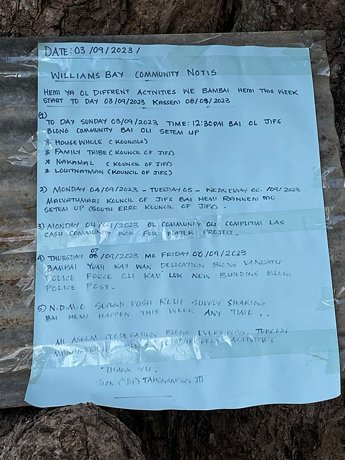 DATE: 03/09/2023/
WILLIAMS BAY COMMUNITY NOTIS
HEMI YA OL DIFFRENT ACTIVITIES WE BAMBAI HEMI THIS WEEK
START TO DAY 03/09/2023 KASSEM 08/09/2023
1)
TO DAY SUNDAY 03/09/2023 TIME: 12:30PM BAI OL JIFS
BLONG COMMUNITY BAI OLI SETEM UP
* HOUSE WHOLE (KOUNCILS)
* FAMILY TRIBE (KOUNCIL OF JIFS)
* NAKAMAL (KOUNCIL OF JIFS)
* LOUITNATMAN (KOUNCIL OF JIFS)
2) MONDAY 04/09/2023 - TUESDAY 05 - WEDNESDAY 06. /09/2023
MAIVATUMAURI KOUNCIL OF JIFS BAI HEMI RANNEM MO
SETEM UP (SOUTH ERRO KOUNCIL OF JIFS).
3) MONDAY 04/09/2023 OL COMMUNITY OLI COMPLITIM LAS
CASH COMMUNITY WOK FOR WATER PROJECT.
4) THURSDAY 07/09/2023 MO FRIDAY 08/09/2023
BAMBAI YUMI KAT WAN DELICATION BLONG VANUATU
POLICE FORCE OLI KAM LUK NEW BUILDING BLONG
POLICE POST.
5) N.D.M.C SECOND PUSH RELIF SUPPLY SHARING
BAI HEMI HAPPEN THIS WEEK ANY TIME..
MI ASKEM BLONG EVERY TOWARDS
ACTIVITIES
THANK YU.